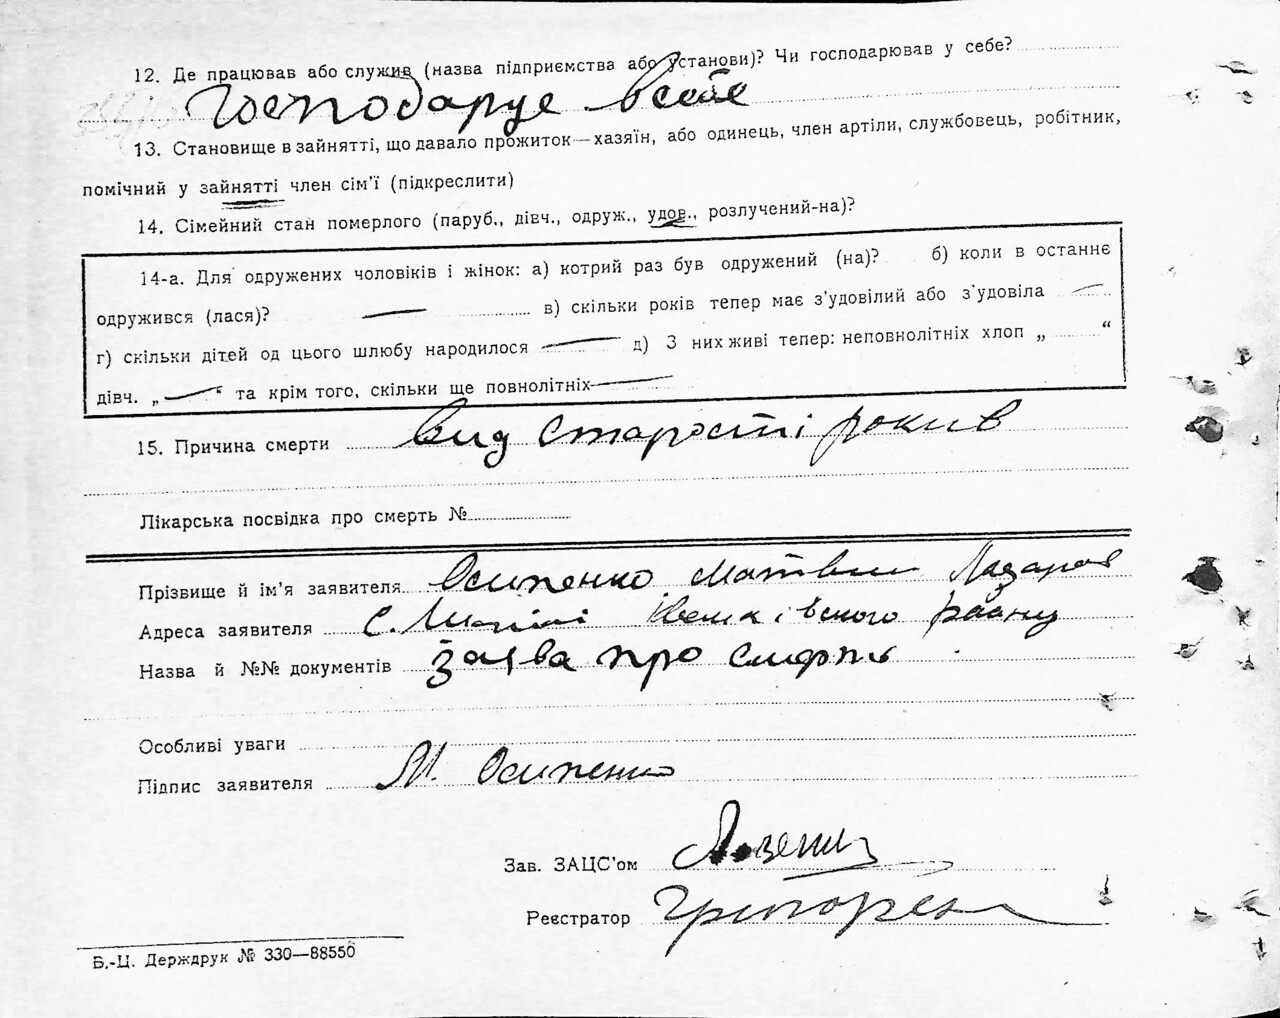 12. Де працював або служив (назва підприємства або установи)? Чи господарював у себе?
Господарує в себе
13. Становище в зайнятті, що давало прожиток—хазяїн, або одинець, член артіли, службовець, робітник,
помічний у зайнятті член сім’ї (підкреслити)
14. Сімейний стан померлого (паруб., дівч., одруж., удов., розлучений-на)?
14-а. Для одружених чоловіків і жінок: а) котрий раз був одружений (на)? б) коли в останнє
одружився (лася)? в) скільки років тепер має з’удовілий або з’удовіла
г) скільки дітей од цього шлюбу народилося д) З них живі тепер: неповнолітніх хлоп „ “
дівч. „ “ та крім того, скільки ще повнолітніх
15. Причина смерти Вид старості рокив
Лікарська посвідка про смерть №
Прізвище й ім’я заявителя Осипенко Матвий
Адреса заявителя С. району
Назва й №№ документів заява про смерть
Особливі уваги
Підпис заявителя М. Осипенко
Зав. ЗАЦС’ом
Реєстратор
Б.-Ц. Держдрук № 330—88550